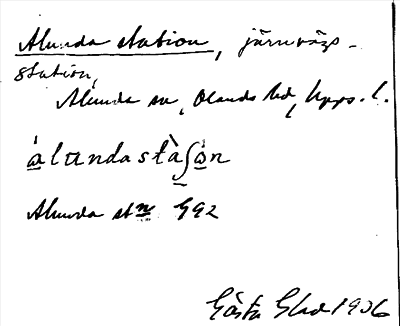 Alunda station, järnvägs-
station,
Alunda sn, Olands hd, Upps. l.
àlundastàʃòn
Alunda stn G92
Gösta Glad 1906